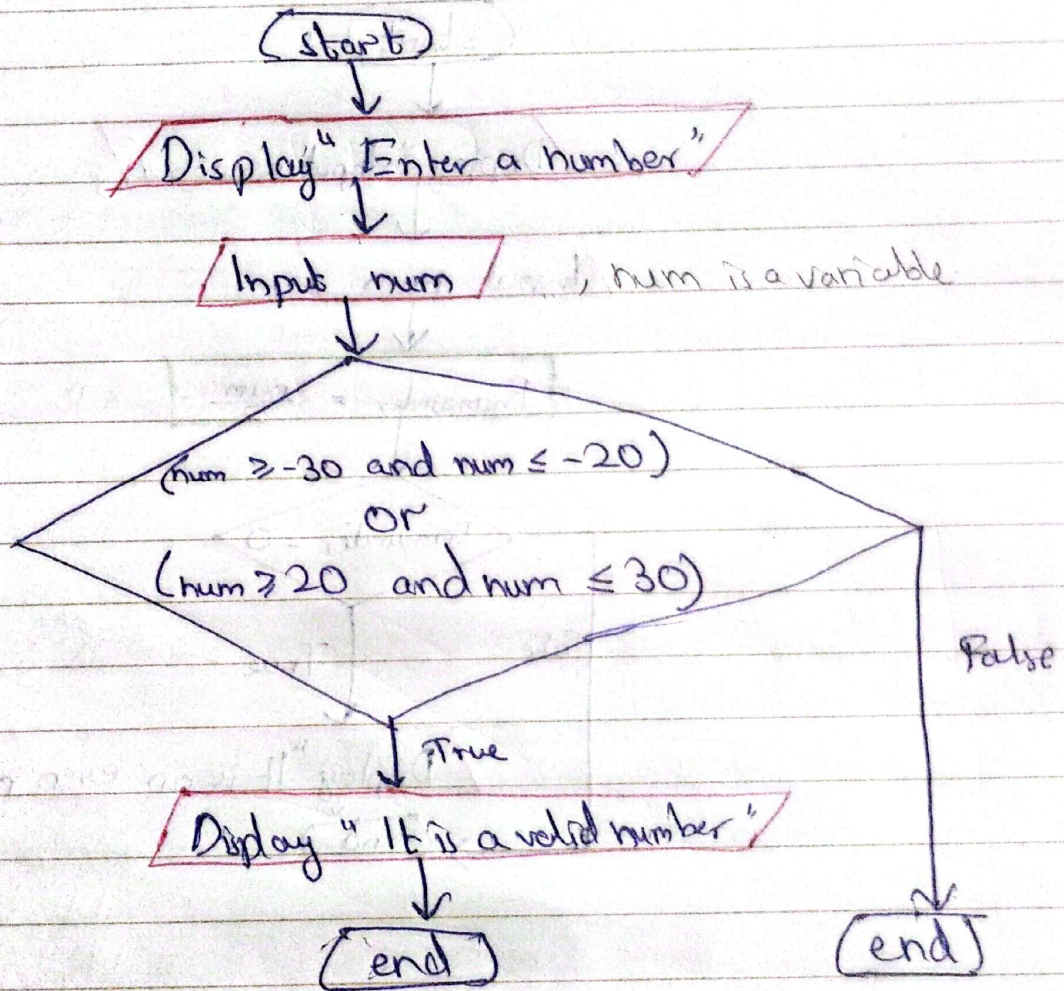 start
Display "Enter a number"
Input num , num is a variable
(num ≥ -30 and num ≤ -20)
or
(num ≥ 20 and num ≤ 30)
False
True
Display "It is a valid number"
end
end